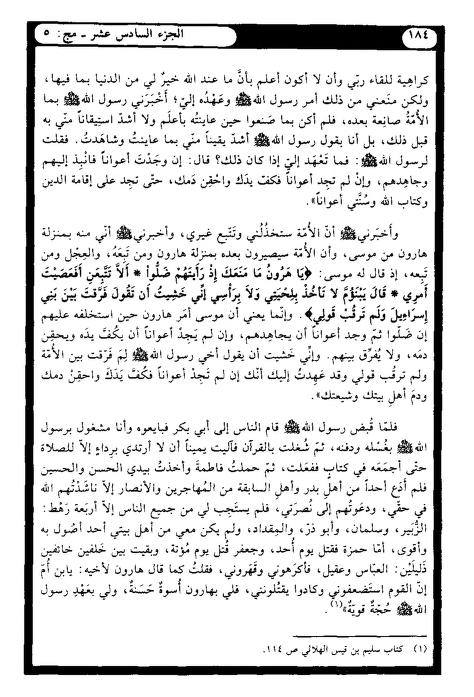 ١٨٤ الجزء السادس عشر ـ مج: ٥
كراهية للقاء ربّي وأن لا أكون أعلم بأنَّ ما عند الله خيرٌ لي من الدنيا بما فيها،
ولكن منَعني من ذلك أمر رسول الله ﷺ وعَهْدُه إليّ؛ أخْبَرَني رسول الله ﷺ بما
الأمّة صانِعة بعده، فلم أكن بما صَنعوا حين عاينتُه بأعلَم ولا أشدّ استيقاناً منّي به
قبل ذلك، بل أنا بقول رسول الله ﷺ أشدّ يقيناً منّي بما عاينتُ وشاهَدتُ. فقلت
لرسول الله ﷺ: فما تَعْهَد إليّ إذا كان ذلك؟ قال: إن وجَدْتَ أعواناً فانْبِذ إليهم
وجاهِدهم، وإن لم تجد أعواناً فكفّ يدَك واحْقِن دَمك، حتّى تجد على إقامة الدين
وكتاب الله وسُنّتي أعواناً».
وأخبَرني ﷺ أنّ الأمّة ستخذُلُني وتَتّبع غيري، وأخبرني ﷺ أنّي منه بمنزلة
هارون من موسى، وأن الأمّة سيصيرون بعده بمنزلة هارون ومن تَبِعَهُ، والعِجْل ومن
تَبِعه، إذ قال له موسى: ﴿يَا هَرُونُ مَا مَنَعَكَ إِذْ رَأَيْتَهُمْ ضَلُّوا * أَلَّا تَتَّبِعَنِ أَفَعَصَيْتَ
أَمْرِي * قَالَ يَبْنَؤُمَّ لَا تَأْخُذْ بِلِحْيَتِي وَلَا بِرَأْسِي إِنِّي خَشِيتُ أَن تَقُولَ فَرَّقْتَ بَيْنَ بَنِي
إِسْرَاءِيلَ وَلَمْ تَرْقُبْ قَوْلِي﴾. وإنّما يعني أن موسى أمَر هارون حين استخلفه عليهم
إن ضَلّوا ثمّ وجد أعواناً أن يجاهدهم، وإن لم يَجِدْ أعواناً أن يكُفّ يدَه ويحقِن
دمَه، ولا يُفرّق بينهم. وإنّي خَشيت أن يقول أخي رسول الله ﷺ لِمَ فَرّقت بين الأمّة
ولم ترقُب قولي وقد عَهِدتُ إليك أنّك إن لم تَجدْ أعواناً فكُفّ يَدَكَ واحقِن دمك
ودمَ أهل بيتك وشيعتك».
فلمّا قُبض رسول الله ﷺ قام الناس إلى أبي بكر فبايعوه وأنا مشغول برسول
الله ﷺ بغُسْله ودفنه، ثمّ شُغلت بالقرآن فآليت يميناً أن لا أرتدي برداءٍ إلاّ للصلاة
حتّى أجمَعَه في كتاب ففعَلت، ثمّ حملتُ فاطمةَ وأخذتُ بيدي الحسن والحسين
فلم أدَع أحداً من أهل بدر وأهل السابقة من المُهاجرين والأنصار إلاّ ناشدْتُهم الله
في حقّي، ودعَوتُهم إلى نُصرَتي، فلم يستَجِب لي من جميع الناس إلاّ أربَعة رَهْط:
الزُّبَير، وسلمان، وأبو ذرّ، والمِقداد، ولم يكن معي من أهل بيتي أحد أصُول به
وأقوى، أمّا حمزة فقتِل يوم أُحد، وجعفر قُتل يوم مُؤتة، وبقيت بين خَلفين خائفين
ذَليلَيْن: العبّاس وعقيل، فأكرَهوني وقَهَروني، فقلتُ كما قال هارون لأخيه: يابن أُمَّ
إنّ القوم استَضعفوني وكادوا يقتُلونني، فلي بهارون أُسوةٌ حَسَنةٌ، ولي بعَهْدِ رسول
الله ﷺ حُجّةٌ قويّةٌ»(١).
(١) كتاب سليم بن قيس الهلالي ص ١١٤.